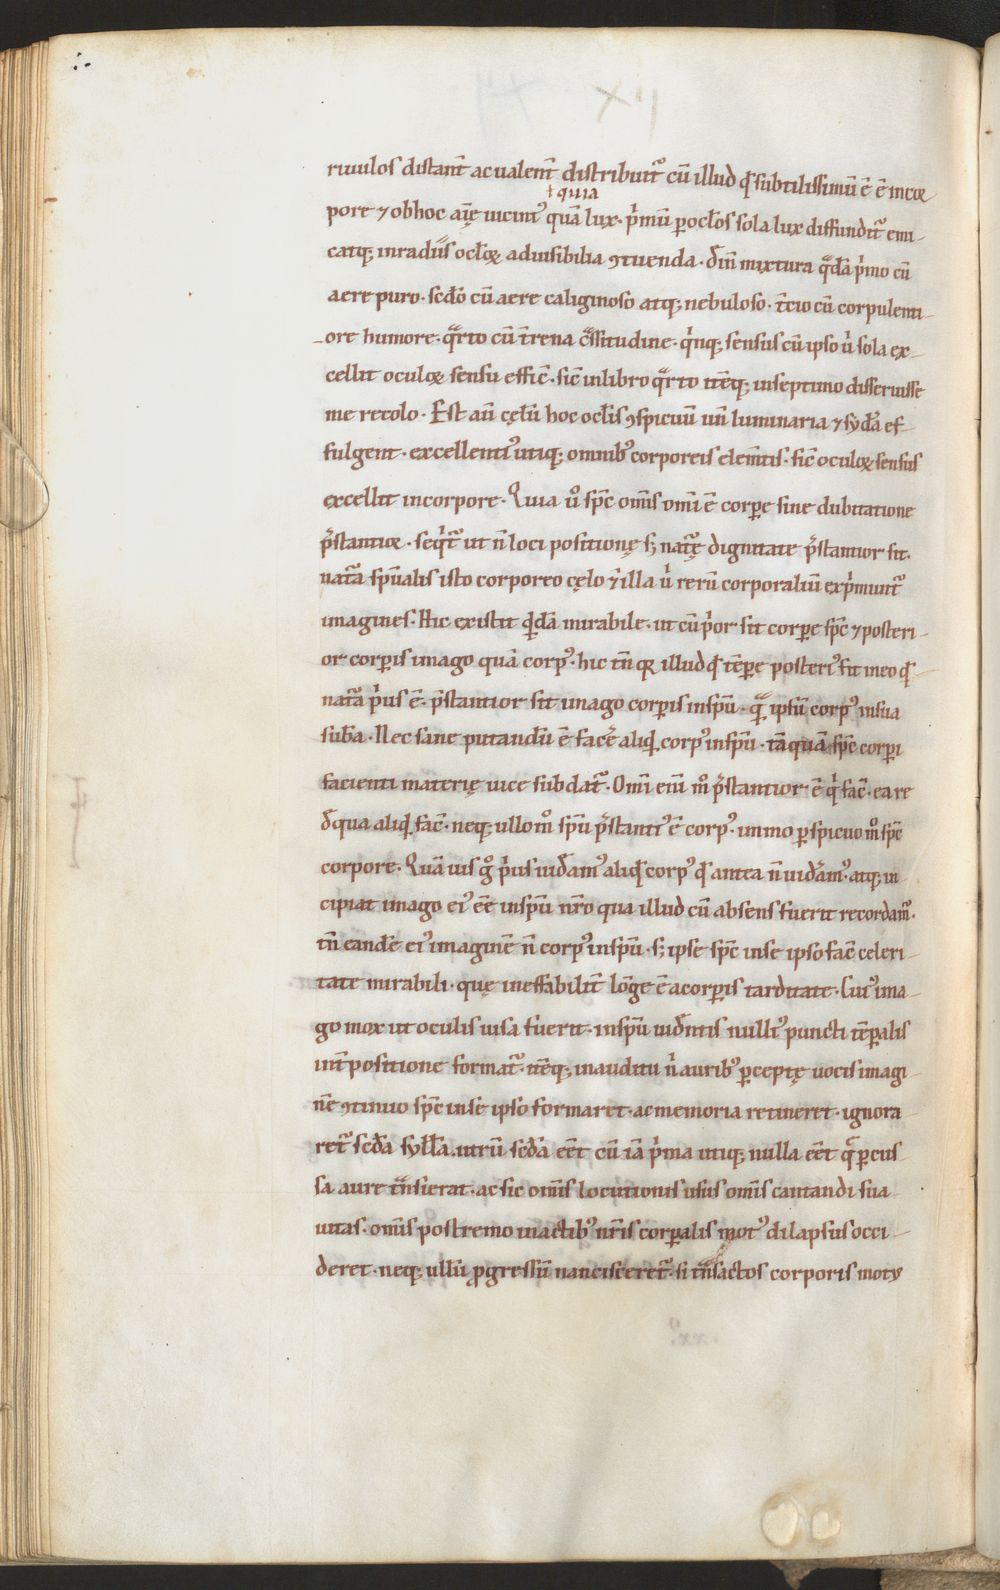 riuulos distant̄ ac ualent̄ distribuit᷑ cū illud qđ subtilissimū ē ē in cor
ł quia
pore ⁊ ob hoc aīę uicini᷒ quā lux· p̄mū p oclōs sola lux diffundit᷑ emi
catq; in radiis oclōꝝ ad uisibilia ꝯtuenda· dīn mixtura qᵃdā p̄mo cū
aere puro· scđo cū aere caliginoso atq; nebuloso· t̄cio cū corpulenti
ore humore· qᵃrto cū t̄rena cᵃssitudine· qⁱnq; sensus cū ipso uⁱ sola ex
cellit oculoꝝ sensu effic̄· sic̄ in libro qᵃrto itēq; in septimo disseruisse
me recolo· Est aū cęlū hoc oclīs ꝯspicuū un̄ luminaria ⁊ syđa ef
fulgent· excellenti᷒ utiq; omnib᷒ corporeis elem̄tis· sic̄ oculoꝝ sensus
excellit in corpore· Quia uº sp̄c omīs omī ē corpe sine dubitatione
p̄stantior· seqⁱt᷑ ut n̄ loci positionę s; nat᷑ę dignitate p̄stantior sit·
nat᷑a sp̄ualis isto corporeo cęlo ⁊ illa uⁱ rerū corporaliū exp̄munt᷑
imagines· Hic existit qđdā mirabile· ut cū pⁱor sit corpe sp̄c ⁊ posteri
or corpis imago quā corp᷒· hic tn̄ qr illud qđ tēpe posteri᷒ fit in eo qđ
nat᷑a pⁱus ē· p̄stantior sit imago corpis in sp̄u· qᵃ ipsū corp᷒ in sua
sub̄a· Nec sane putandū ē facē aliqđ corp᷒ in sp̄u· tāquā sp̄c corpi
facienti materię uice subdat᷑· Omī eni᷒ mº p̄stantior ē qⁱ fac̄· ea re
đ qua aliqđ fac̄· neq; ullo mº sp̄u p̄stanti᷒ ē corp᷒· immo pspicuo mº sp̄c
corpore· Quāuis gº pⁱus uiđam᷒ aliqđ corp᷒ qđ antea n̄ uiđam᷒· atq; in
cipiat imago ei᷒ ēē in sp̄u nr̄o qua illud cū absens fuerit recordam᷒·
tn̄ eandē ei᷒ imaginē n̄ corp᷒ in sp̄u· s; ipse sp̄c in se ipso fac̄ celeri
tate mirabili· quę ineffabilit̄ lōge ē a corpis tarditate· Cui᷒ ima
go mox ut oculis uisa fuerit· in sp̄u uiđntis nulli᷒ puncti tēpalis
int̄positione format᷑· itēq; in auditu nⁱ aurib᷒ pceptę uocis imagi
nē ꝯtinuo sp̄c in se ipso formaret· ac memoria retineret· ignora
ret᷑ scđa sylłā· utrū scđa eēt cū iā pⁱma utiq; nulla eēt qᵃ pcus
sa aure tᵃnsierat· ac sic omīs locutionis usus omīs cantandi sua
uitas· omīs postremo in actib᷒ nr̄is corpalis mot᷒ dilapsus occi
deret· neq; ullū ꝓgressū nancisceret᷑· si tᵃnsactos corporis mot᷒